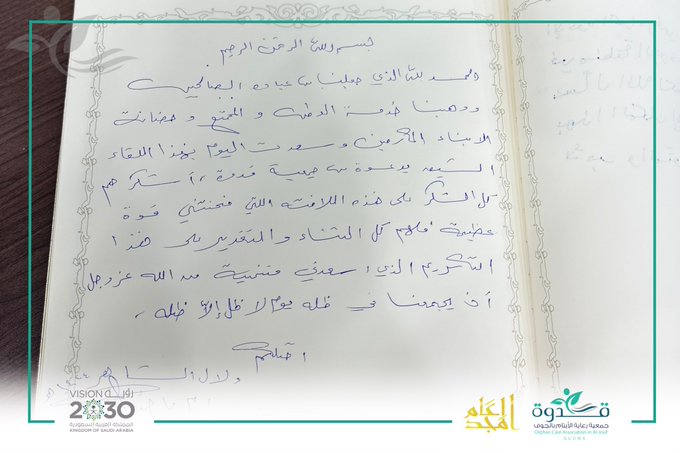 بسم الله الرحمن الرحيم
الحمد لله الذي جعلنا من عباده الصالحين
ووهبنا خدمة الوطن و المجتمع و حضانة
الابناء المكرمين وسعدت اليوم بهذا اللقاء
بدعوة من جمعية قدوة، أشكرهم
كل الشكر على هذه اللافتة اللتي منحتني قوة
عظيمة فلهم كل الثناء والتقدير على هذا
التكريم الذي أسعدني متمنية من الله عز وجل
أن يجمعنا في ظله يوم لا ظل إلا ظله،
رؤيـة
VISION
2030
المملكة العربية السعودية
KINGDOM OF SAUDI ARABIA
قـدوة
جمعية رعاية الأيتام بالجوف
Orphan Care Association in Al Jouf
QUDWA